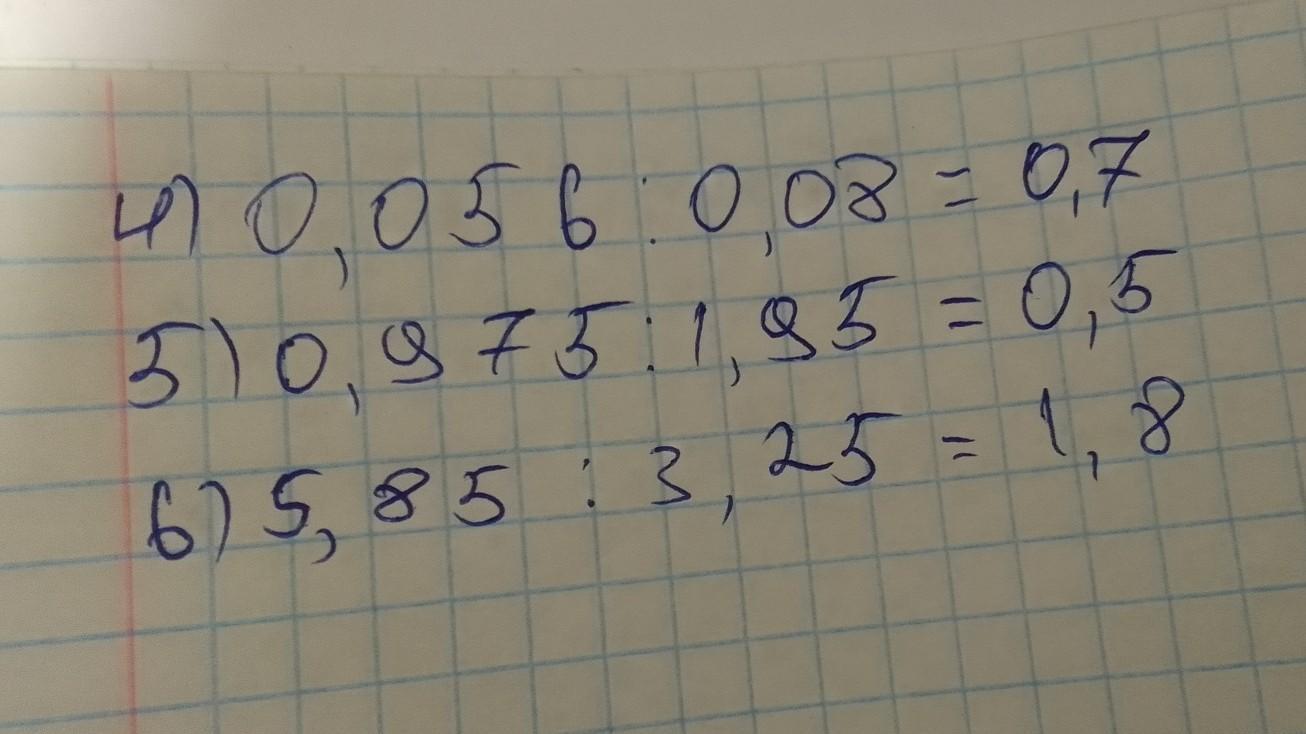 4) 0,056 : 0,08 = 0,7
5) 0,975 : 1,95 = 0,5
6) 5,85 : 3,25 = 1,8